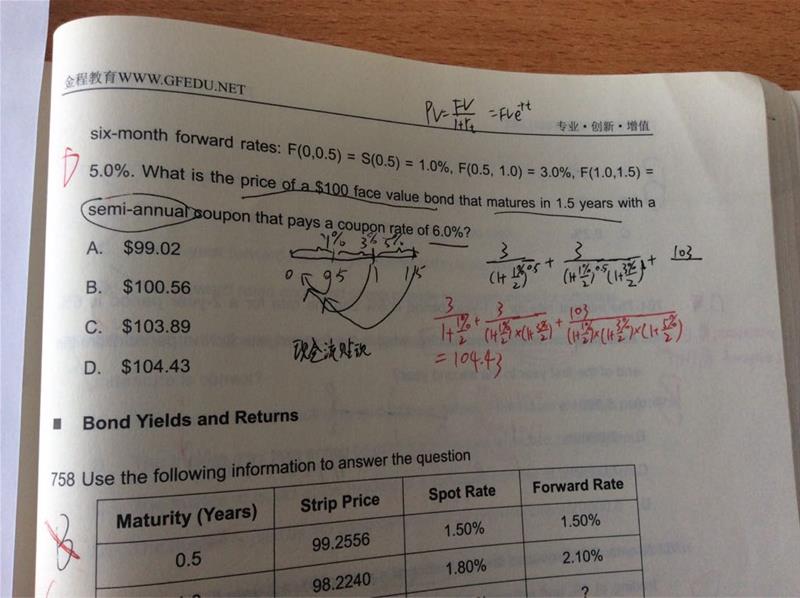 金程教育WWW.GFEDU.NET
PV = FV / (1+rt) = FVe^-rt
专业·创新·增值
six-month forward rates: F(0,0.5) = S(0.5) = 1.0%, F(0.5, 1.0) = 3.0%, F(1.0,1.5) =
D
5.0%. What is the price of a $100 face value bond that matures in 1.5 years with a
semi-annual coupon that pays a coupon rate of 6.0%?
A. $99.02
B. $100.56
C. $103.89
D. $104.43
1% 3% 5%
0 0.5 1 1.5
现金流贴现
3/(1+1%/2)^0.5 + 3/(1+1%/2)^0.5(1+3%/2)^1 + 103
3/(1+1%/2) + 3/(1+1%/2)×(1+3%/2) + 103/(1+1%/2)×(1+3%/2)×(1+5%/2)
= 104.43
■ Bond Yields and Returns
758 Use the following information to answer the question
Maturity (Years) Strip Price Spot Rate Forward Rate
0.5 99.2556 1.50% 1.50%
98.2240 1.80% 2.10%
?
B